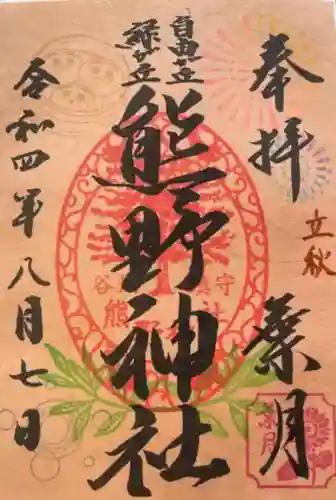 奉拝
立秋
葉月
自由が丘
緑が丘
熊野神社
令和四年八月七日
葉月